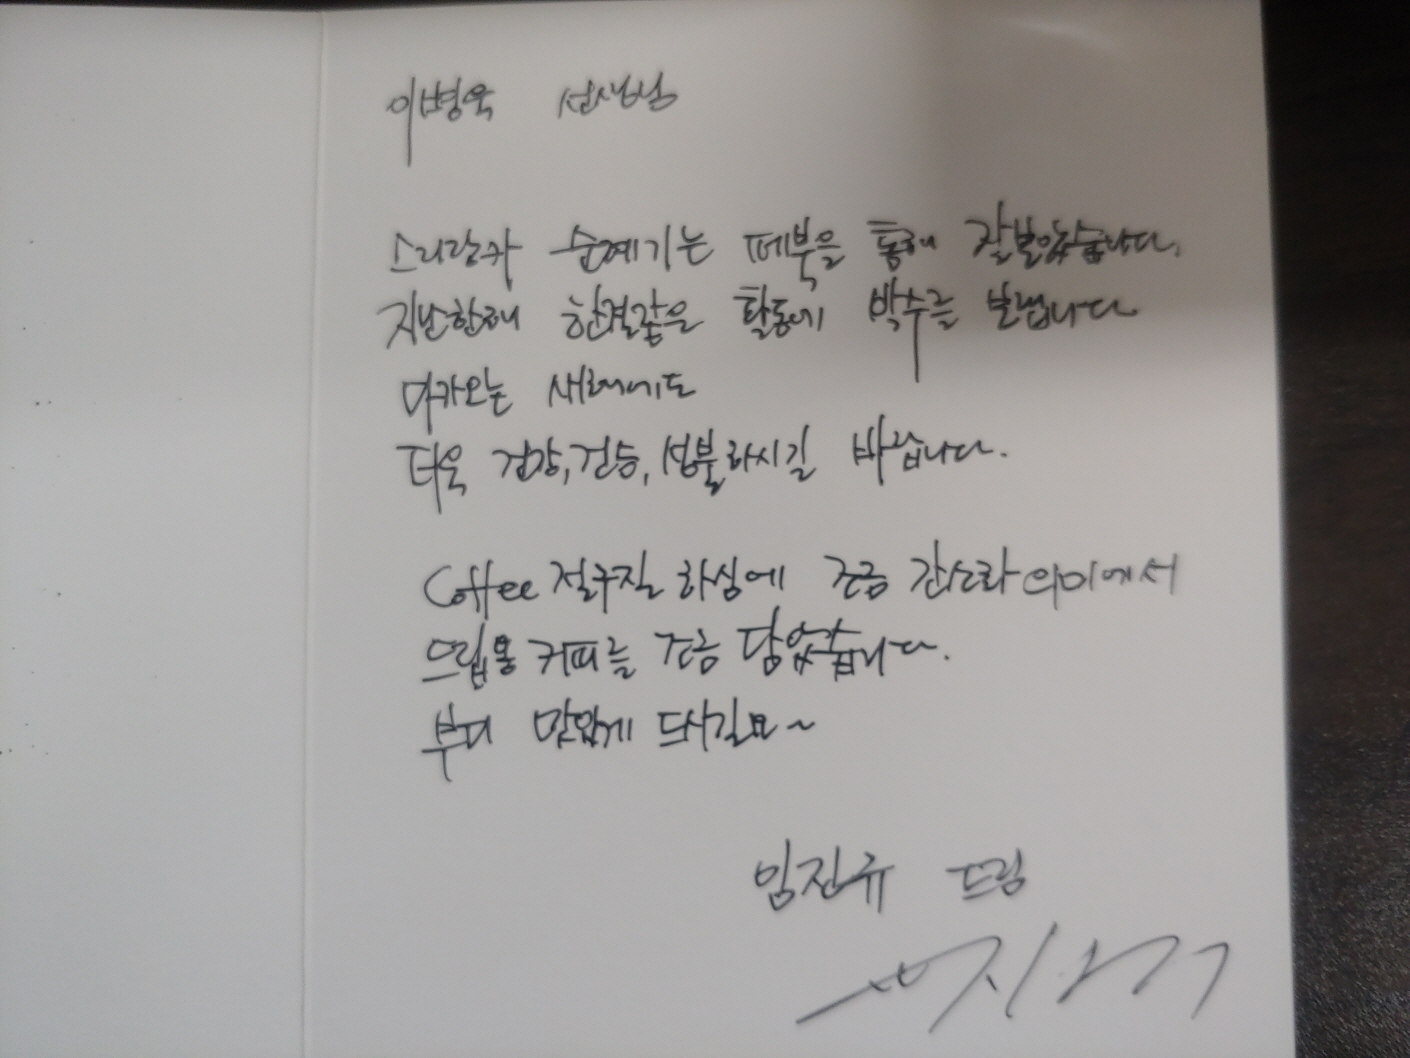 이병욱 선생님
스리랑카 순례기는 페북을 통해 잘보았습니다.
지난한해 한결같은 활동에 박수를 보냅니다
다가오는 새해에도
더욱 건강, 건승, 성불하시길 바랍니다.
Coffee 절구질 하심에 조금 간소화 의미에서
드립용 커피를 조금 담았습니다.
부디 맛있게 드시길요~
임진규 드림